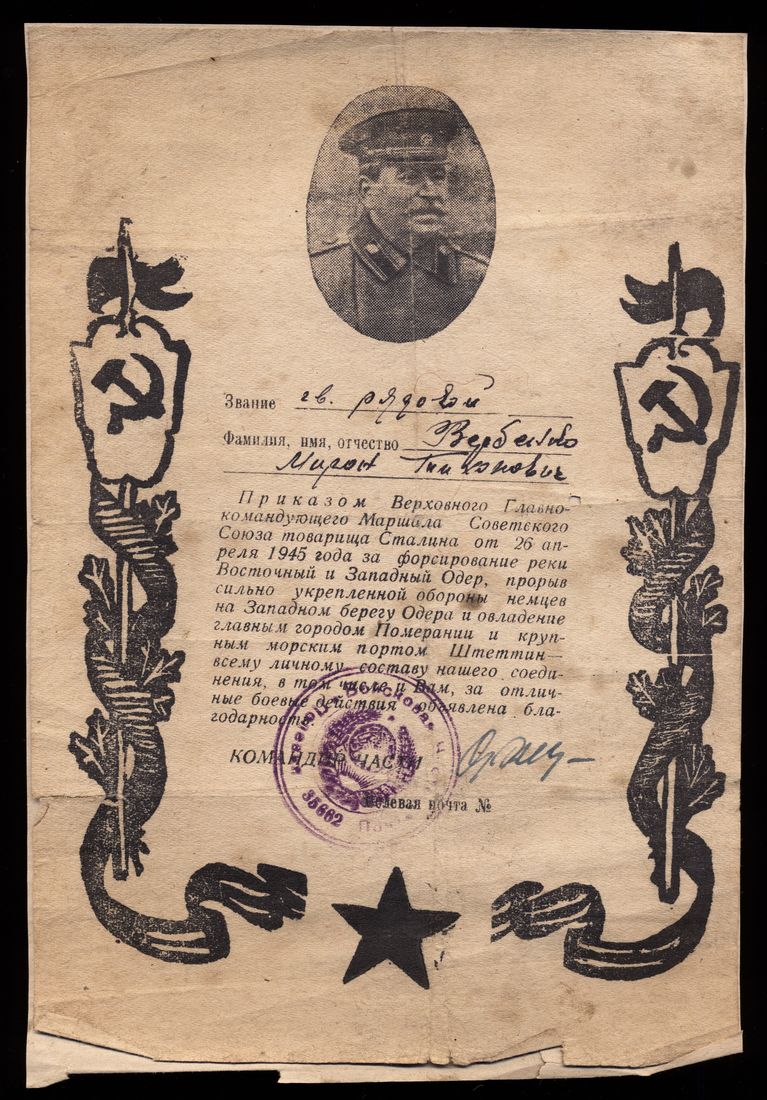 Звание гв. рядовой
Фамилия, имя, отчество Вербенко
Мирон Тихонович
Приказом Верховного Главно-
командующего Маршала Советского
Союза товарища Сталина от 26 ап-
реля 1945 года за форсирование реки
Восточный и Западный Одер, прорыв
сильно укрепленной обороны немцев
на Западном берегу Одера и овладение
главным городом Померании и круп-
ным морским портом Штеттин—
всему личному составу нашего соеди-
нения, в том числе и Вам, за отлич-
ные боевые действия объявлена бла-
годарность.
КОМАНДИР ЧАСТИ
Полевая почта №
35662